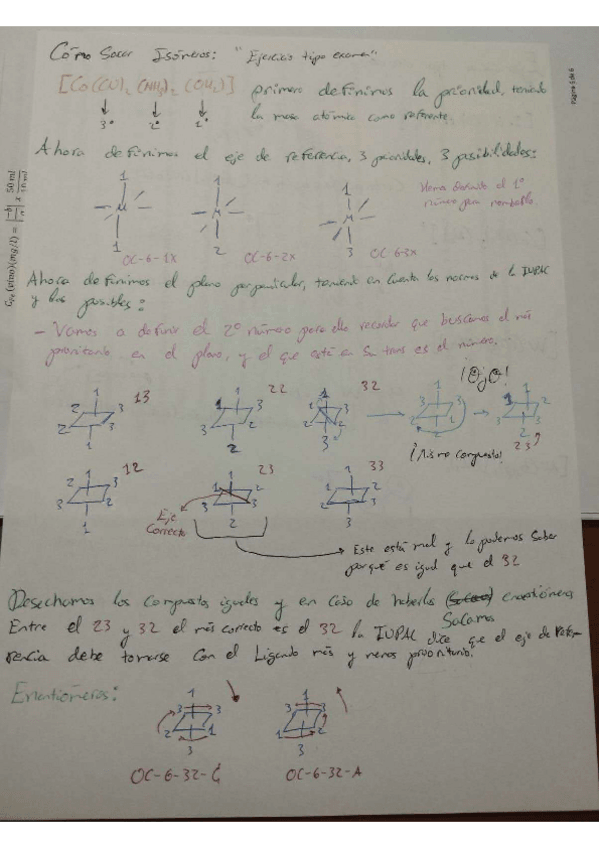 Cómo Sacar Isómeros: "Ejercicio tipo examen"
[Co(CN)2 (NH3)2 (OH2)2]
3º 2º 1º
primero definimos la prioridad, teniendo
la masa atómica como referente.
Página 5 de 6
Ahora definimos el eje de referencia, 3 prioridades, 3 posibilidades:
1 1 1
M M M
1 2 3
OC-6-1x OC-6-2x OC-6-3x
Hemos definido el 1º
número para nombrarlo.
Ahora definimos el plano perpendicular, teniendo en cuenta las normas de la IUPAC
y las posibles:
- Vamos a definir el 2º número para ello recordar que buscamos el más
prioritario en el plano, y el que está en su trans es el número.
¡Ojo!
13 22 32
¡Mismo compuesto!
23
12 23 33
Eje
Correcto
Este está mal y lo podemos saber
porqué es igual que el 32
Desechamos los compuestos iguales y en caso de haberlos enantiómeros
Sacamos
Entre el 23 y 32 el más correcto es el 32 la IUPAC dice que el eje de refe-
rencia debe tomarse con el Ligando más y menos prioritario.
Enantiómeros:
1 1
3 3 3 3
2 1 1 2
3 3
OC-6-32-C OC-6-32-A